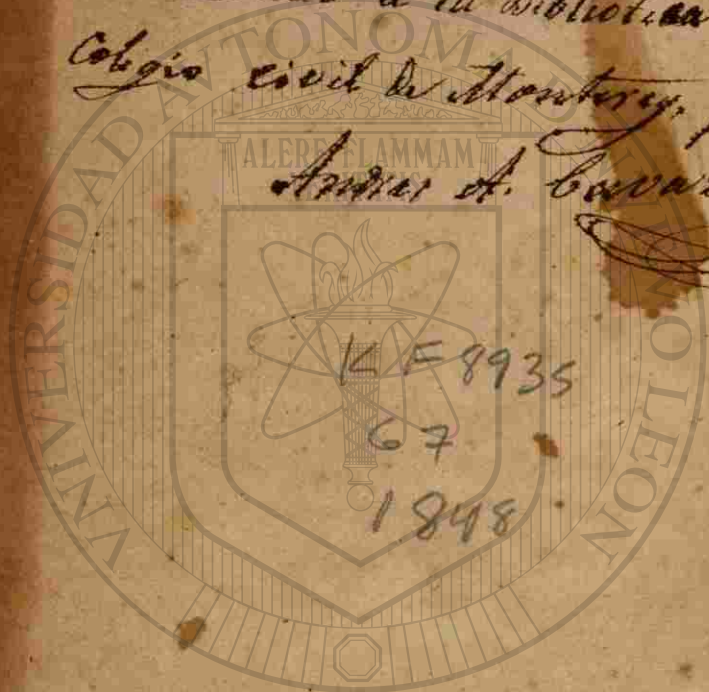 a la Biblioteca
Colegio civil de Monterey,
Andres A.
UNIVERSIDAD AUTONOMA NUEVO LEON
ALERE FLAMMAM
KF8935
G7
1848